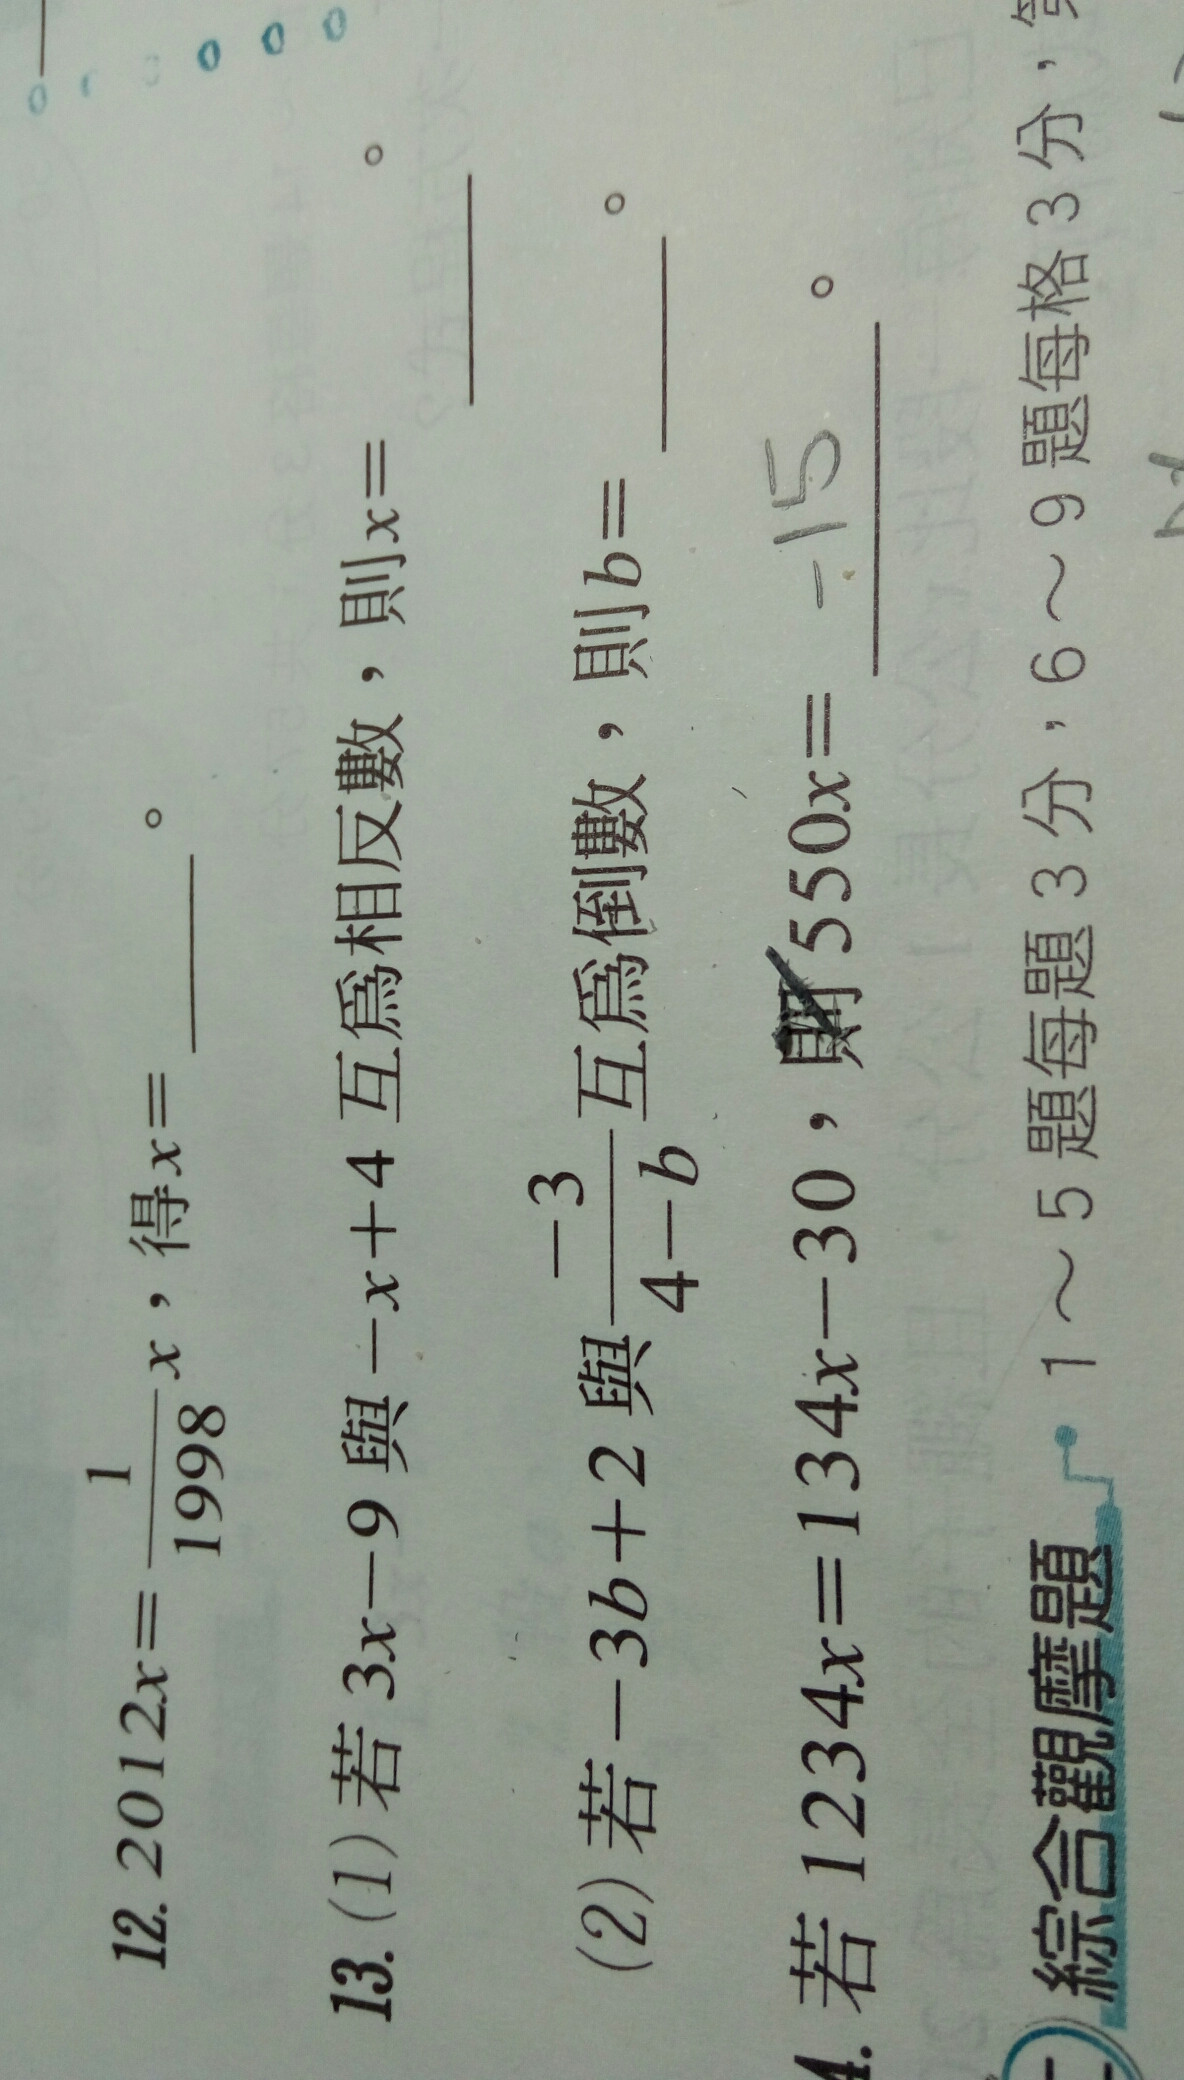 12. 2012x=1/1998 x，得x=＿＿＿。
13. (1) 若3x－9與－x＋4互為相反數，則x=＿＿＿。
(2) 若－3b＋2與－3/4－b互為倒數，則b=＿＿＿。
4. 若1234x=134x－30，則550x= -15。
綜合觀摩題 1～5題每題3分，6～9題每格3分，